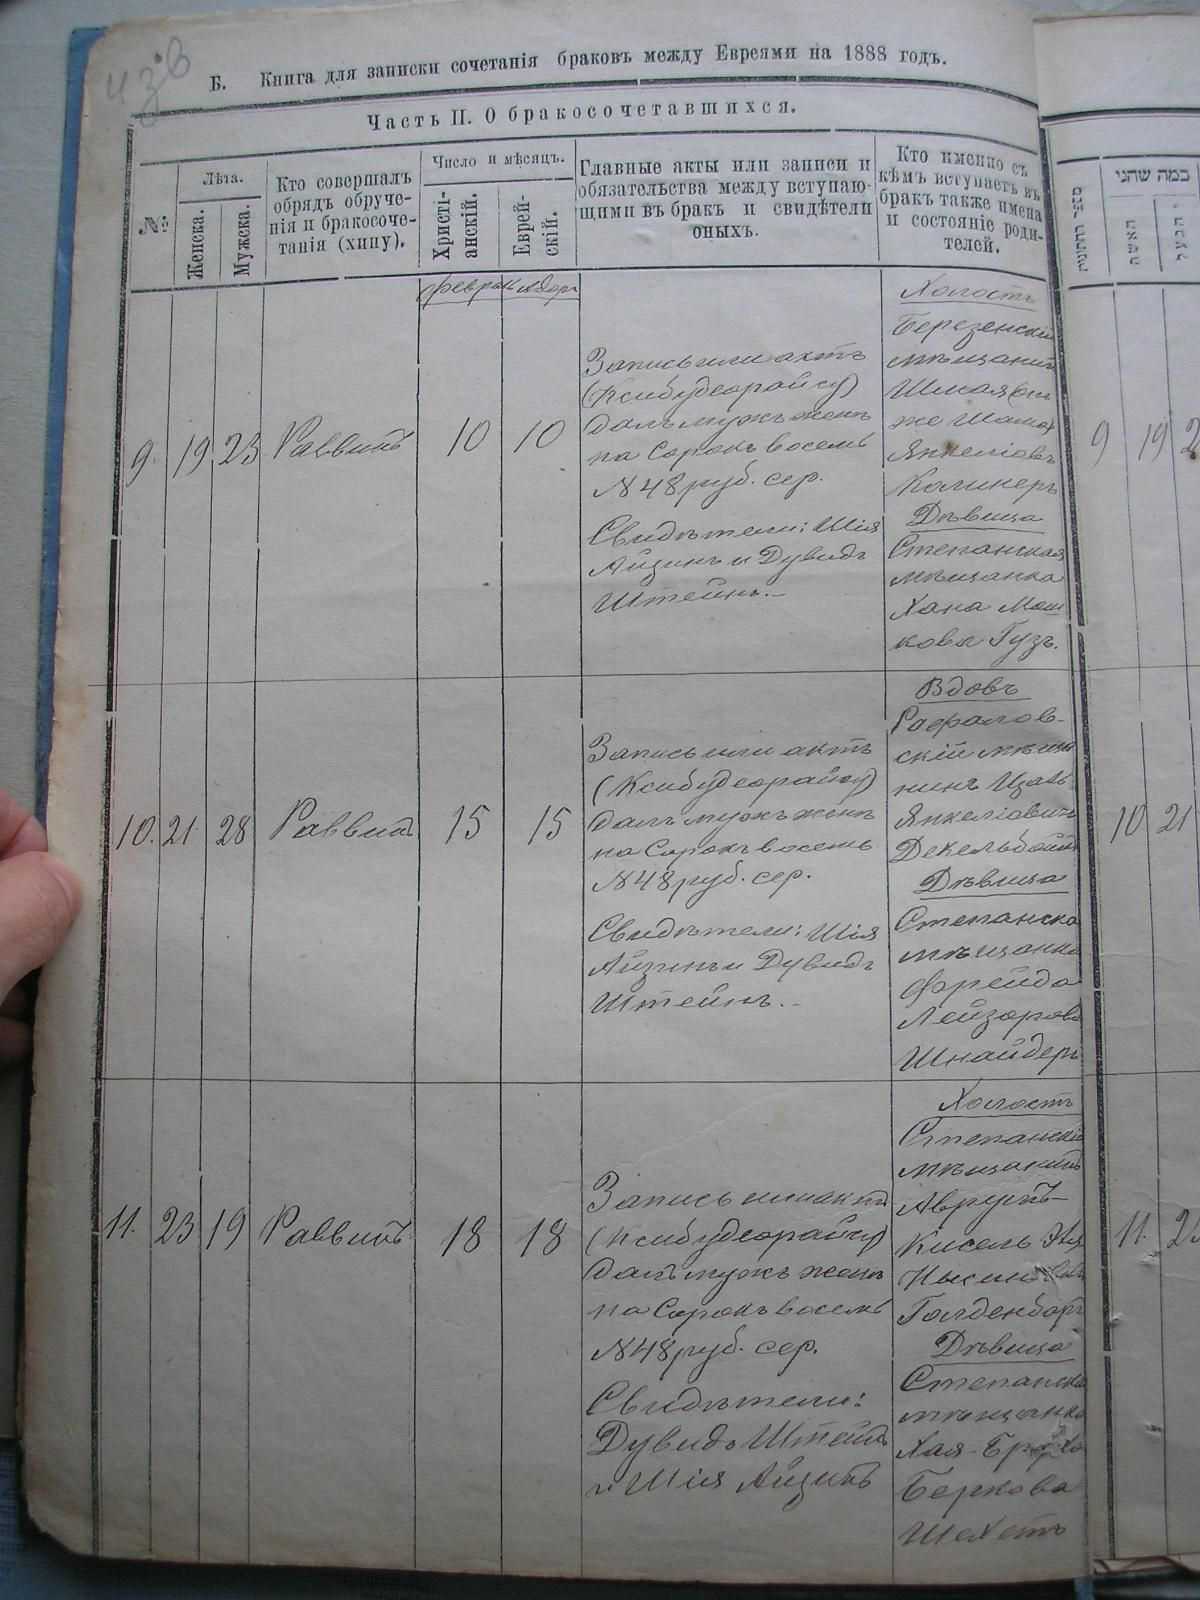 Б. Книга для записки сочетанія браковъ между Евреями на 1888 годъ.
Часть II. О бракосочетавшихся.
№
Лѣта.
Женска.
Мужска.
Кто совершалъ
обрядъ обруче-
нія и бракосоче-
танія (хипу).
Число и мѣсяцъ.
Христі-
анскій.
Еврей-
скій.
Главные акты или записи и
обязательства между вступаю-
щими въ бракъ и свидѣтели
оныхъ.
Кто именно съ
кѣмъ вступаетъ въ
бракъ также имена
и состояніе роди-
телей.
כמה שהני
האשה
הבעל
Феврал Адоръ
9. 19 23 Раввинъ 10 10
Запись или актъ
(Ксибудеорайсу)
далъ мужъ женѣ
на Сорокъ восемь
№ 48 руб. сер.
Свидѣтели: Шія
Айзинъ и Дувидъ
Штейнъ.–
Холостъ
Березенскій
мѣщанинъ
Шмая онъ
же Шама
Янкеліовъ
Колинеръ
Дѣвица
Степанская
мѣщанка
Хана Мош
кова Гузъ.
9 19 2
10. 21 28 Раввинъ 15 15
Запись или актъ
(Ксибудеорайсу)
далъ мужъ женѣ
на Сорокъ восемь
№ 48 руб. сер.
Свидѣтели: Шія
Айзинъ и Дувидъ
Штейнъ.–
Вдовъ
Рафалов-
скій мѣща
нинъ
Янкеліовичъ
Декельбойм
Дѣвица
Степанска
мѣщанка
Фрейда
Лейзорова
Шнайдеръ
10 21
11. 23 19 Раввинъ 18 18
Запись или актъ
(Ксибудеорайсу)
далъ мужъ женѣ
на Сорокъ восемь
№ 48 руб. сер.
Свидѣтели:
Дувидъ Штейнъ
и Шія Айзинъ
Холостъ
Степанскій
мѣщанинъ
Аврумъ-
Кисель
Голденбергъ
Дѣвица
Степанска
мѣщанка
Хая-Бруха
Беркова
Шехетъ
11. 2